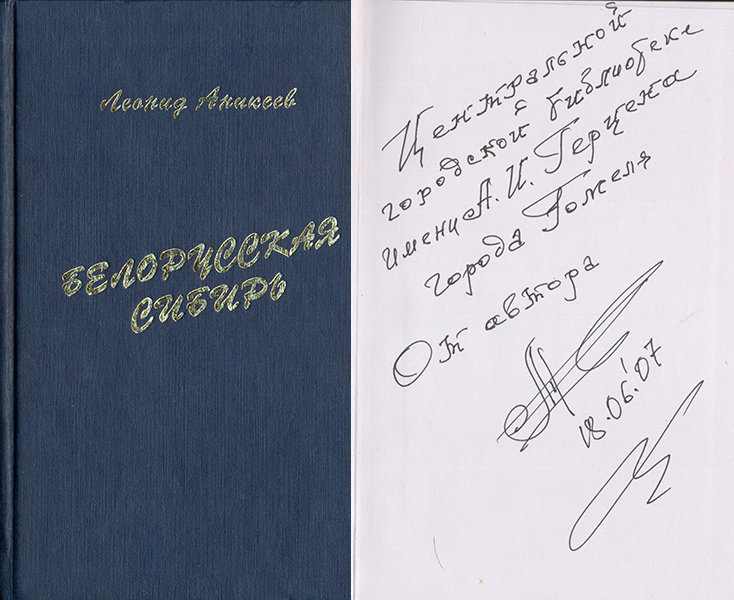 Леонид Аникеев
БЕЛОРУССКАЯ
СИБИРЬ
Центральной
городской библиотеке
имени А. И. Герцена
города Гомеля
От автора
18.06.07